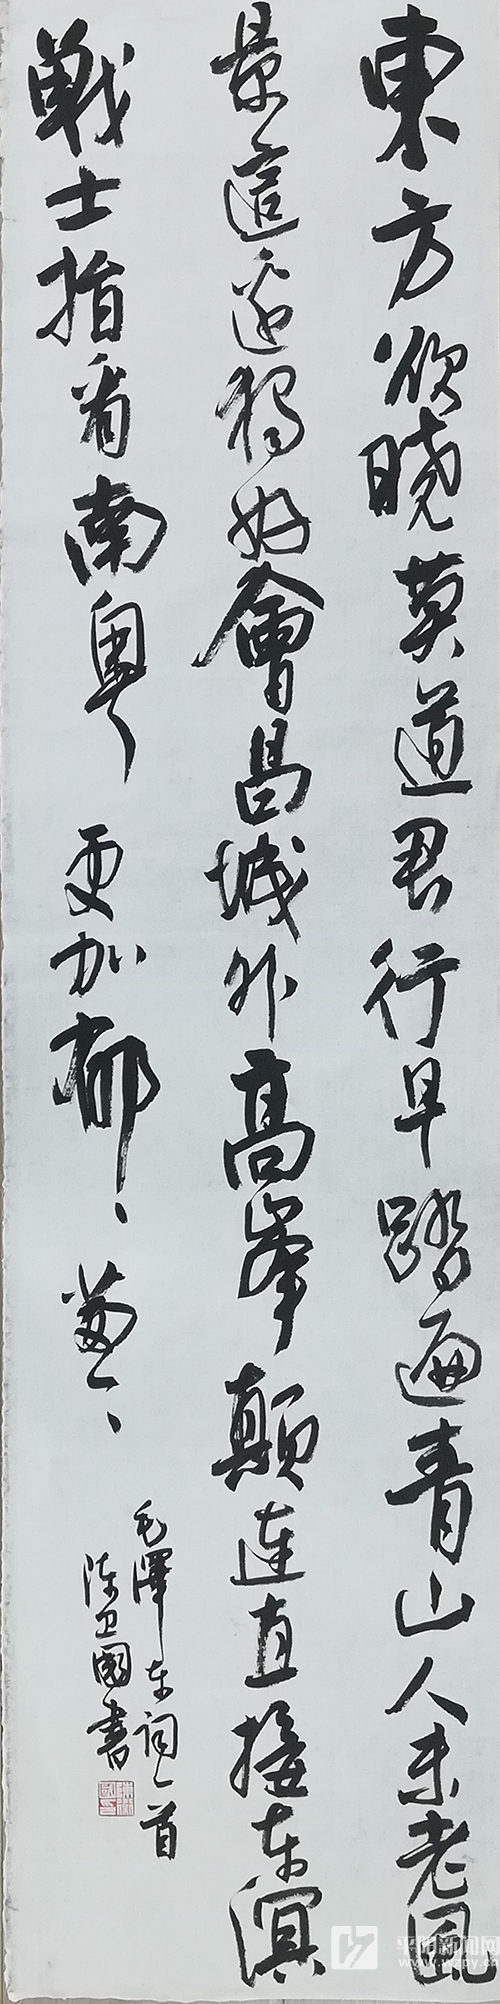 東方欲曉莫道君行早踏遍青山人未老風
景這邊獨好會昌城外高峯顛連直接东溟
戰士指看南粵更加郁、葱、
毛澤东词一首
陈卫國書
平阳新闻网
www.wzpy.cn